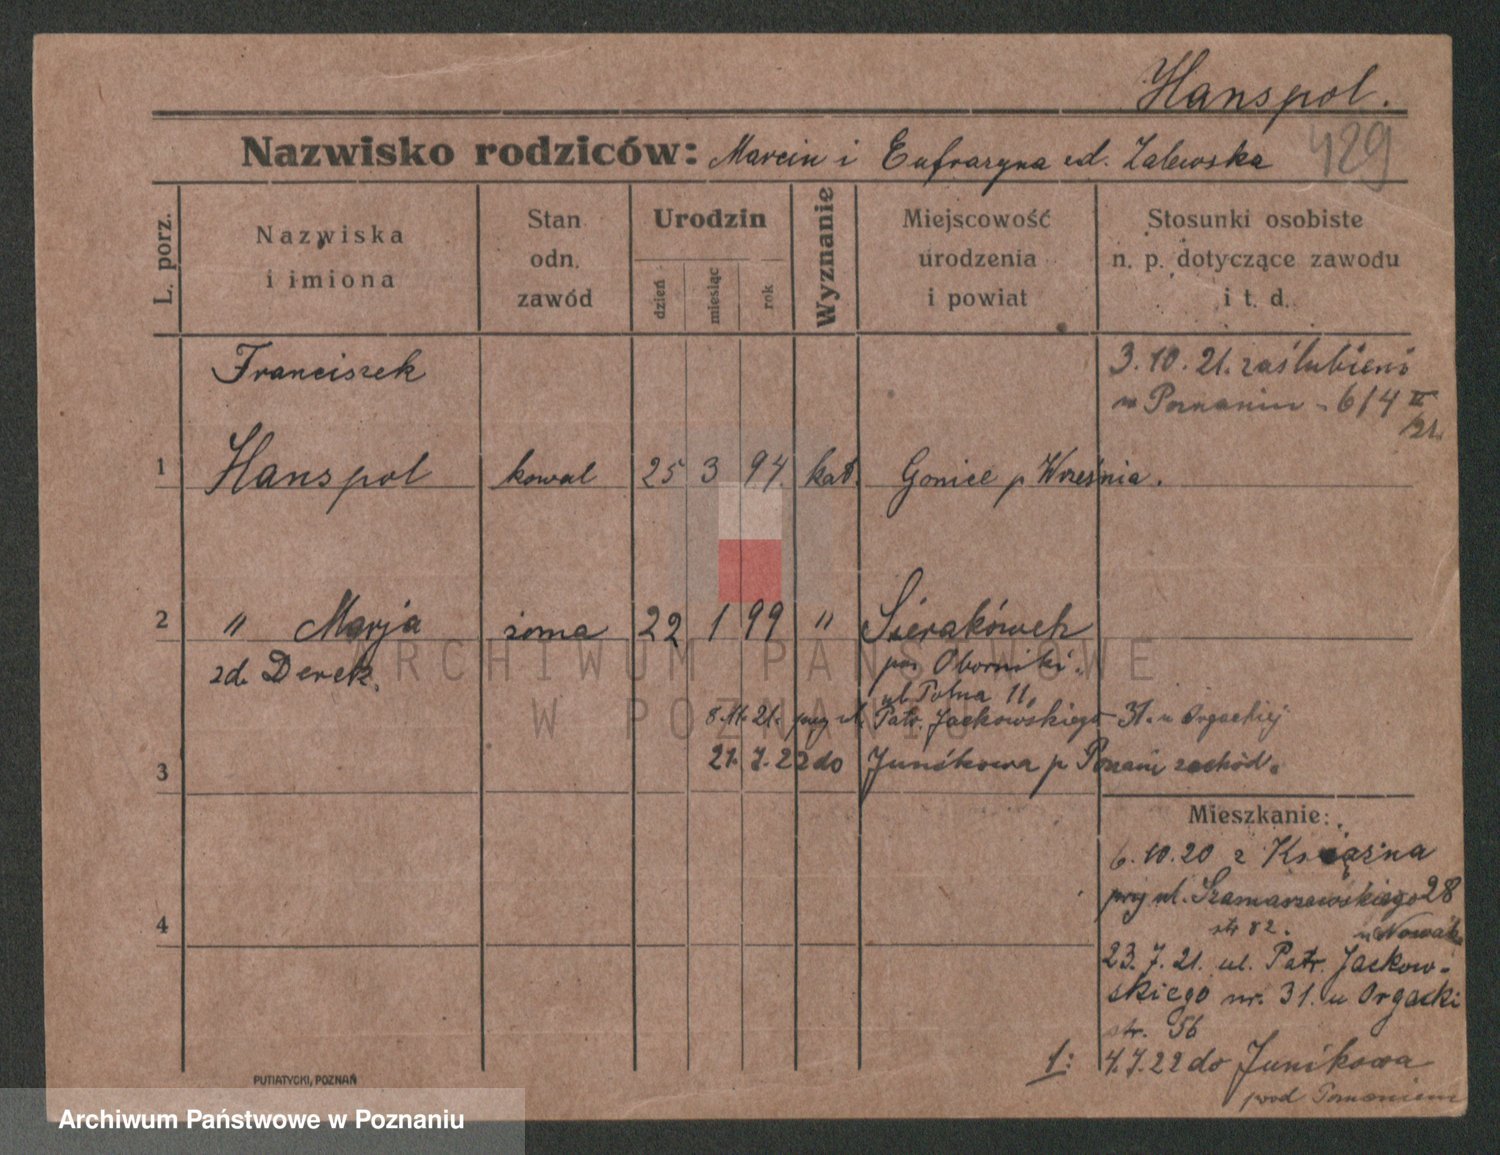 Hanspol.
429
Nazwisko rodziców: Marcin i Eufrazyna zd. Zalewska
L. porz.
Nazwiska
i imiona
Stan
odn.
zawód
Urodzin
dzień
miesiąc
rok
Wyznanie
Miejscowość
urodzenia
i powiat
Stosunki osobiste
n. p. dotyczące zawodu
i t. d.
Franciszek
3.10.21. zaślubieni
w Poznaniu - 614 II
/21.
1 Hanspol kowal 25 3 94. kat. Gonice p Września.
2 " Marja żona 22 1 99 " Sierakówek
zd. Derek.
pow Oborniki.
ul. Polna 11,
8.11.21. przy ul. Patr. Jackowskiego 31. u Orgackiej
3 21. 7. 22 do Junikowa p Poznań zachód.
Mieszkanie:
6.10.20 z Książna
przy ul. Szamarzewskiego 28
str 82. u Nowak
4
23. 7. 21. ul. Patr. Jackow-
skiego nr. 31. u Orgacki
str. 56
1: 4. 7. 22 do Junikowa
pod Poznaniem
PUTIATYCKI, POZNAŃ
ARCHIWUM PAŃSTWOWE
W POZNANIU
Archiwum Państwowe w Poznaniu